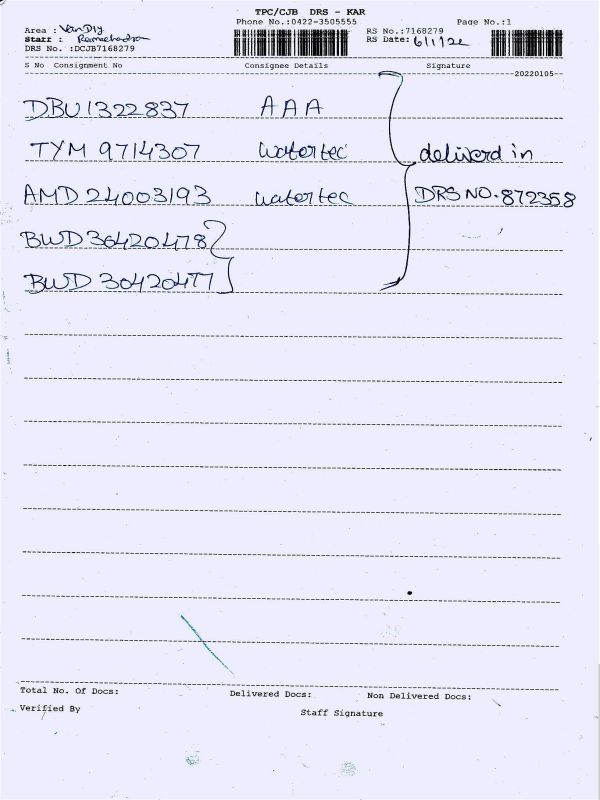 TPC/CJB DRS - KAR
Phone No.:0422-3505555 Page No.:1
Area : Van Dly
Staff : Ramachadran
RS No.:7168279
RS Date: 6/1/22
DRS No. :DCJB7168279
S No Consignment No Consignee Details Signature
20220105
DBU1322837 AAA
TYM 9714307 Watertec deliverd in
AMD 24003193 Watertec DRS NO. 872358
BWD 30420478
BWD 30420477
Total No. Of Docs: Delivered Docs: Non Delivered Docs:
Verified By Staff Signature